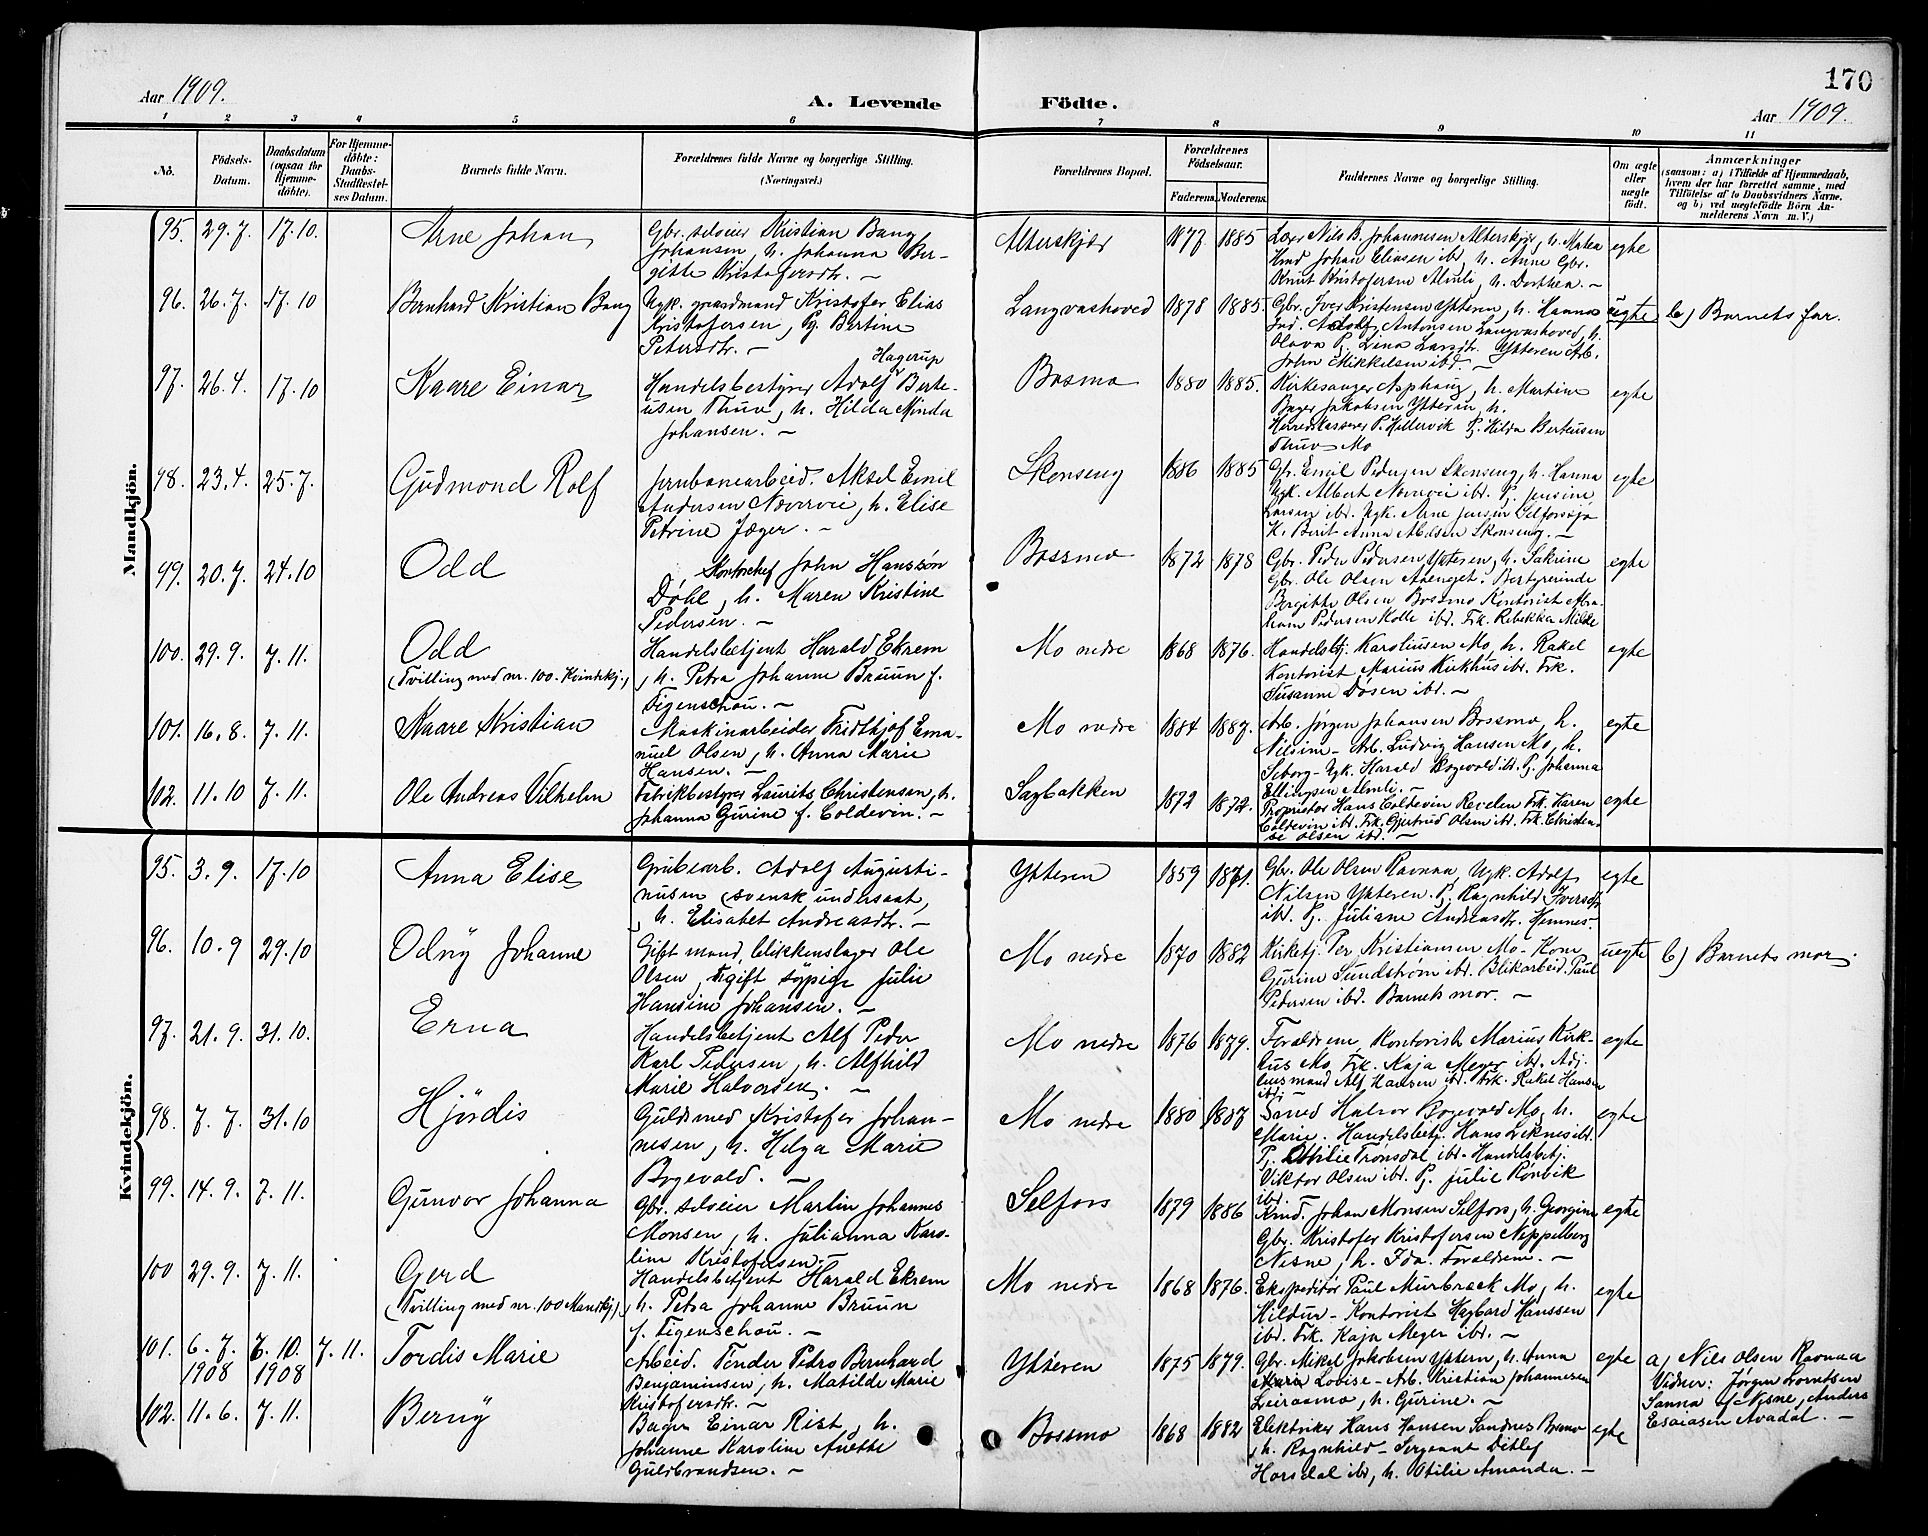 170
Aar 1909.
A. Levende Födte.
Aar 1909.
1 2 3 4 5 6 7 8 9 10 11
No.
Födsels-Datum.
Daabsdatum (ogsaa for Hjemme-döbte).
For Hjemme-döbte: Daabs-Stadfestel-ses Datum.
Barnets fulde Navn.
Forældrenes fulde Navne og borgerlige Stilling. (Næringsvei.)
Forældrenes Bopæl.
Forældrenes Födselsaar.
Faderens. Moderens.
Faddernes Navne og borgerlige Stilling.
Om ægte eller uægte födt.
Anmærkninger
(saasom: a) i Tilfælde af Hjemmedaab,
hvem der har forrettet samme, med
Tilföielse af to Daabsvidners Navne.
og b) ved uægtefödte Börn An-
melderens Navn m. V.)
Mandkjön.
95. 29.7. 17.10. Arne Johan
Gbr. selveier Kristian Bang
Johansen, h. Johanna Ber-
gitte Kristofersdtr. –
Alterskjær 1877 1885
Læger Nils B. Johannesen Alterskjær, h. Martea
Kmd Johan Eliasen ibd, h. Anne Gbr.
Knut Kristofersen Almli, h. Dorthea. –
egte
96. 26.7. 17.10 Bernhard Kristian Bang
Ugk. gaardmand Kristofer Elias
Kristofersen, Pg. Bertine
Petersdtr. –
Langvashoved 1878 1885.
Gbr. Iver Kristensen Ytteren, h. Hanna
Ind. Adolf Antonsen Langvashoved, h.
Olava Pg. Lina Larsdtr. Ytteren Arb.
John Mikkelsen ibd. –
uegte b) Barnets far.
97. 26.4. 17.10 Kaare Einar
Handelsbestyrer Adolf Hagerup Berte-
usen Thuv, h. Hilda Minda
Johansen. –
Bosmo 1880 1885.
Kirkesanger Asphaug, h. Martine
Bager Jakobsen Ytteren, h.
Herredskasserer P. Hellervik Pg. Hilda Berteusen
Thuv Mo
egte
98. 23.4. 25.7. Gudmond Rolf
Jernbanearbeid. Aksel Emil
Andersen Neverveie, h. Elise
Petrine Jæger. –
Skonseng 1886 1885
Gbr. Emil Pedersen Skonseng, h. Hanna
Ugk. Albert Neverveie ibd. Pg. Jensine
Larsen ibd. Ugk. Arne Jensen Selforssjø
K. Berit Anna Nilsen Skonseng. –
egte
99. 20.7. 24.10 Odd
Kontorchef John Hanssön
Döhl, h. Maren Kristine
Pedersen. –
Bossmo 1872 1878
Gbr. Peder Pedersen Ytteren, h. Sakrine
Gbr. Ole Olsen Aaenget. Bestyrerinde
Bergitte Olsen Bossmo Kontorist Abra-
ham Pedersen Holte ibd. Frk. Rebekka Milde
egte
100. 29.9. 7.11. Odd
(Tvilling med nr. 100. Kvindekj.)
Handelsbetjent Harald Ekrem
, h. Petra Johanne Bruun f.
Figenschou. –
Mo nedre 1868 1876.
Handelsbtj. Karoliussen Mo, h. Rakel
Kontorist Marius Kirkhus ibd. Frk.
Susanne Dosen ibd. –
egte
101. 16.8. 7.11. Kaare Kristian
Maskinarbeider Fridthjof Ema-
nuel Olsen, h. Anna Marie
Hansen. –
Mo nedre 1884 1887.
Arb. Jørgen Johansen Bossmo, h.
Nilsine – Arb. Ludvig Hansen Mo, h.
Seborg – Ugk. Harald Bogevold ibd. Pg. Johanna
Ellingsen Almli. –
egte
102. 11.10 7.11. Ole Andreas Vilhelm
Fabrikbestyrer Laurits Christensen, h.
Johanna Gurine f. Coldevin. –
Sagbakken 1872 1872.
Proprietør Hans Coldevin Revelen Frk. Karen
Coldevin ibd. Frk. Gjertrud Olsen ibd. Frk. Christen-
se Olsen ibd. –
egte
Kvindekjön.
95. 3.9. 17.10 Anna Elise
Grubearb. Adolf Augusti-
nusen (svensk undersaat,
, h. Elisabet Andreasdtr. –
Ytteren 1859 1871.
Gbr. Ole Olsen Ravnaa, Ugk. Adolf
Nilsen Ytteren. Pg. Ragnhild Iversdtr
ibd. Pg. Juliane Andreasdtr. Hemnes –
egte
96. 10.9 29.10 Odny Johanne
Gift mand, blikkenslager Ole
Olsen, ugift sypige Julie
Hansine Johansen. –
Mo nedre 1870 1882
Kirketj. Per Kristiansen Mo – Kone
Gurine Sundstrøm ibd. Blikarbeid. Paul
Pedersen ibd. Barnets mor. –
uegte b) Barnets mor.
97. 21.9. 31.10. Erna
Handelsbetjent Alf Peder
Karl Pedersen, h. Alfhild
Marie Halvorsen. –
Mo nedre 1876 1879.
Foraldrene, Kontorist Marius Kirk-
hus Mo, Frk. Kaja Meyer ibd. Adj.
lensmand Alf Hansen ibd. Frk. Rakel Hansen
ibd. –
egte
98. 7.7. 31.10 Hjördis
Guldsmed Kristofer Johan-
nesen, h. Helga Marie
Bogevald. –
Mo nedre 1880 1887
Smed Halvor Bogevald Mo, h.
Marie. Handelsbetj. Hans Leknes ibd.
Pg. Ottilie Trønsdal ibd. Handelsbetj.
Viktor Olsen ibd. Pg. Julie Rønvik
ibd. –
egte
99. 14.9. 7.11. Gunvor Johanna
Gbr. selveier Martin Johannes
Monsen, h. Julianna Karo-
line Kristofersen. –
Selfors 1879 1886
Kmd. Johan Monsen Selfors, h. Georgine
Gbr. Kristofer Kristofersen Neppelberg
Nesne, h. Ida. Foraldrene. –
egte
100 29.9. 7.11. Gerd
(Tvilling med nr. 100 Mandkj.)
Handelsbetjent Harald Ekrem
, h. Petra Johanne Bruun
f. Figenschou. –
Mo nedre 1868 1876.
Ekspeditør Paul Murbræck Mo, h.
Hildur – Kontorist Hagbard Hanssen
ibd. Frk. Kaja Meyer ibd. –
egte
101. 6.7. 1908 7.10. 1908 7.11. Tordis Marie
Arbeid. Tønder Pedro Bernhard
Benjaminsen, h. Matilde Marie
Kristofersdtr. –
Ytteren 1875 1879.
Gbr. Mikal Jakobsen Yttern, h. Anna
Maria Lovise – Arb. Kristian Johannesen
Leiraamo, h. Gurine. –
egte
a) Nils Olsen Ravnaa
Vidner: Jørgen Lorntsen
Sanna af Nesne, Anders
Esaiasen Avadal. –
102. 11.6. 7.11. Berny
Bager Einar Rist, h.
Johanne Karoline Anette
Guldbrandsen. –
Bossmo 1868 1882
Elektriker Hans Hansen Sandnes Bosmo
, h. Ragnhild – Sergeant Ditlef
Horsdal ibd, h. Otilie Amanda. –
egte